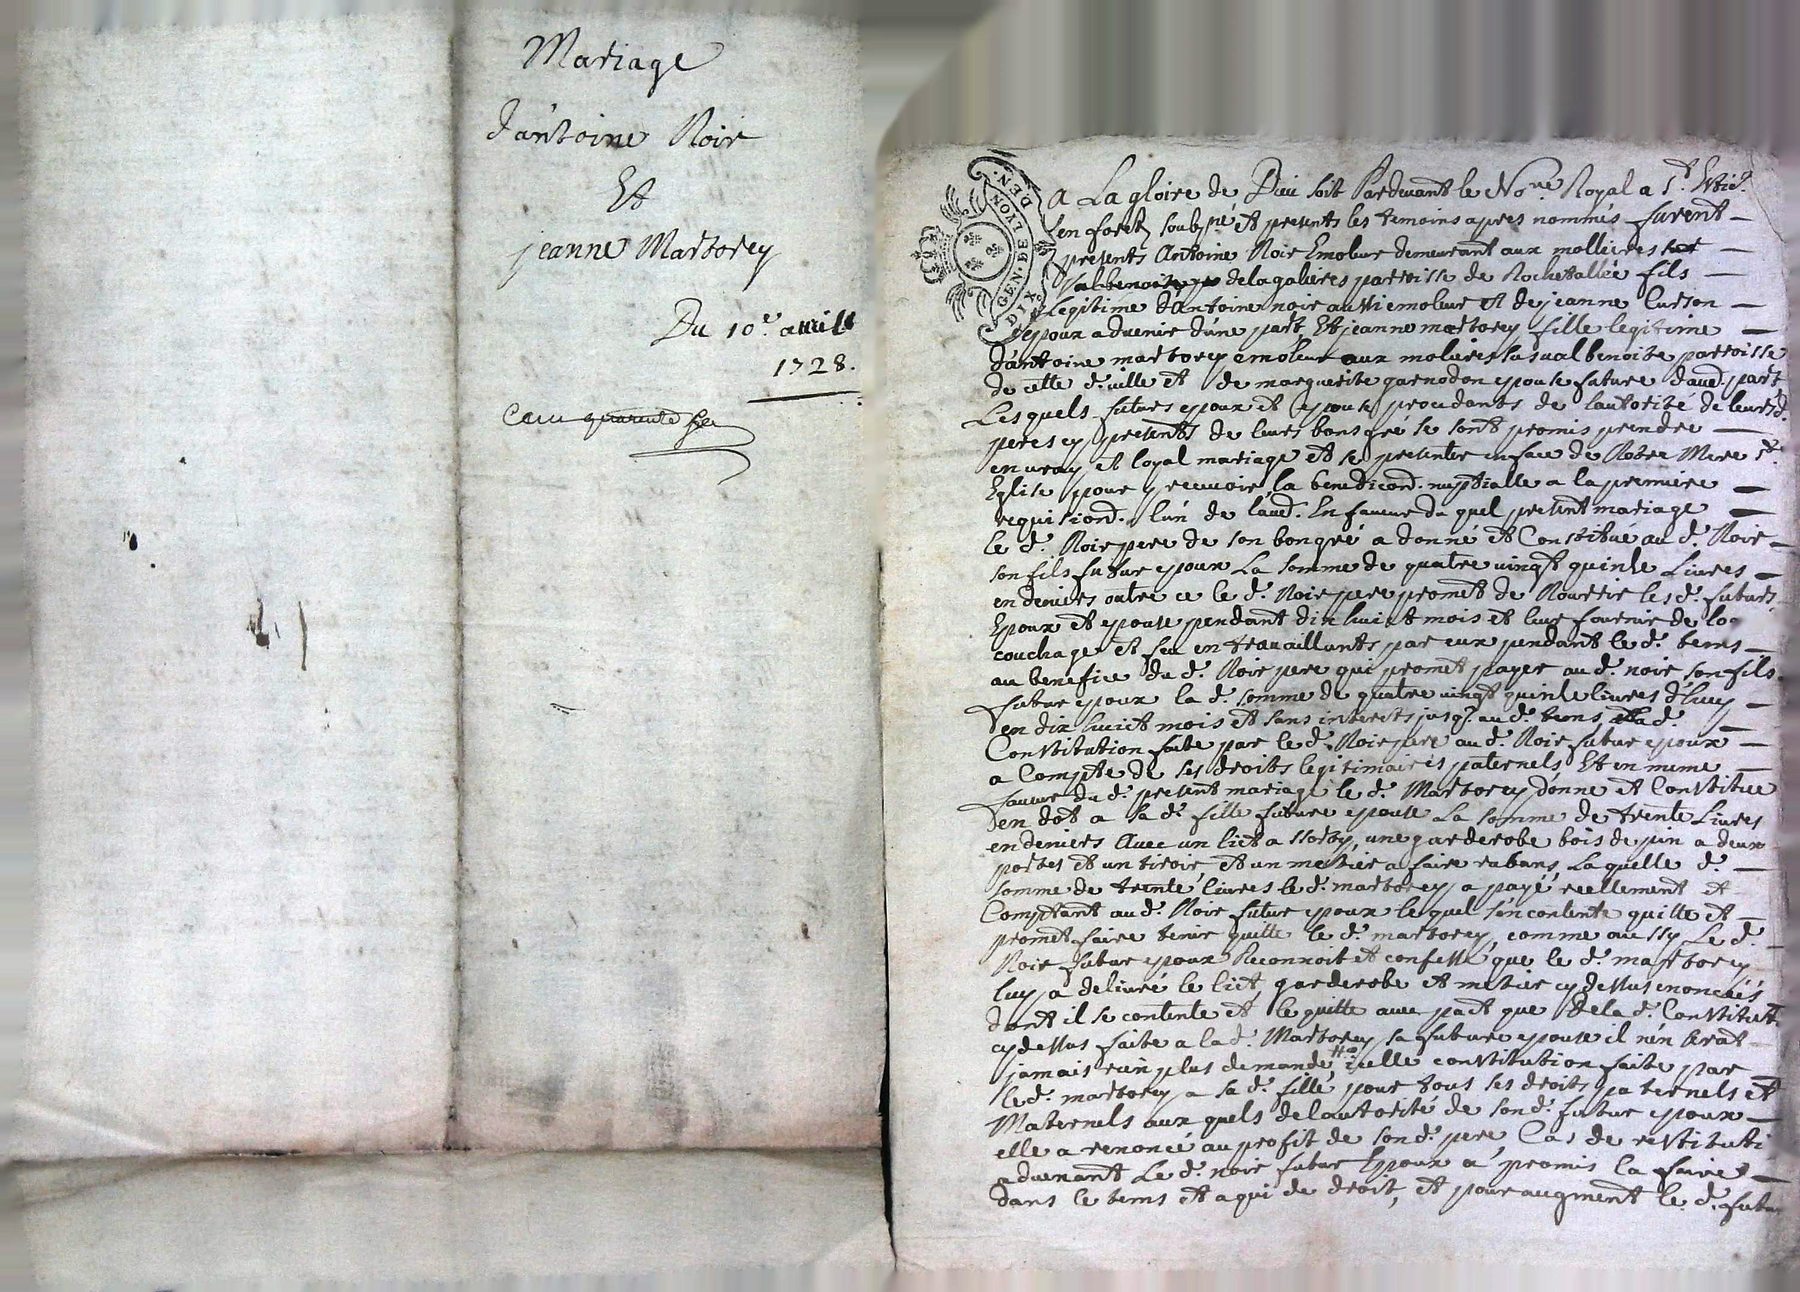 Mariage
d'antoine Noir
Et
jeanne Martorey
Du 10e. avril
1728.
GEN. DE LYON. DEN.
A La gloire de Dieu soit Pardevant le Nore. Royal a St. Etie.
en forest soubsné et presents les temoins apres nommés furent
presents Antoine Noir Emoleur demeurant aux mollieres
delagalieres parroisse de Rochetallée fils
Legitime d'Antoine noir aussi emoleur et de jeanne Curson
epoux advenir d'une part, Et jeanne martorey fille legitime
d'antoine martorey emoleur aux molieres sus valbenoite parroisse
de cette d. ville et de marguerite garnodon epouse future d'aud. part
Lesquels futurs epoux et epouse procedants de l'autorité de leurs d.
peres cy presents de leurs bons gré se sont promis prendre
en vray et loyal mariage et se presenter en face de Notre Mere Ste.
Eglise pour y recevoir la benediond. nuptialle a la premiere
requisiond. l'un de l'aud. En faveur du quel present mariage
le d. Noir pere de son bon gré a donné et Constitué au d. Noir
son fils futur epoux La somme de quatre vingt quinze Livres
en deniers outre ce le d. Noir pere promet de Nourrir les d. futurs
Epoux et epouse pendant dix huict mois et leur fournir de
couchage et feu en travaillants par eux pendant le d. tems
au benefice du d. Noir pere qui promet payer au d. noir son fils
futur epoux la d. somme de quatre vingt quinze livres d'huy
en dix huict mois et sans interets jusq. au d. tems la d.
Constitution faite par le d. Noir pere au d. Noir futur epoux
a Compte de ses droits legitimaires paternels Et en meme
faveur du d. present mariage le d. Martorey donne et Constitue
en dot a sa d. fille future epouse La somme de trente Livres
en deniers Avec un lict assorty, une garderobe bois de pin a deux
portes et un tiroir, et un metier a faire rubans, La quelle d.
somme de trente livres le d. martorey a payé reellement et
Comptant au d. Noir futur epoux lequel s'en contente quitte et
promet faire tenir quitte le d. martorey, comme aussy Le d.
Noir futur epoux Reconnoit et confesse que le d. martorey
luy a delivré le lict garderobe et metier cy dessus enoncées
dont il se contente et le quitte avec pact que de la d. Constitut.
cy dessus faite a la d. Martorey sa future epouse il n'en
jamais rien plus demandé, icelle constitution faite par
le d. martorey a sa d. fille pour tous ses droits paternels et
Maternels aux quels de l'autorité de son d. futur epoux
elle a renoncé au profit de son d. pere Cas de restituti
advenant Le d. noir futur Epoux a promis la faire
dans le tems et a qui de droit, et pour augment le d. futur